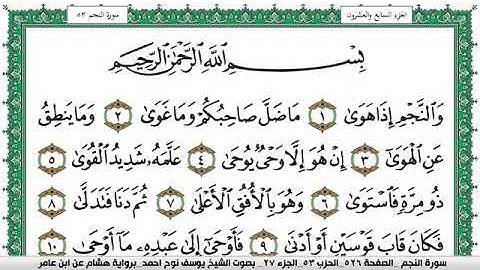 الجزء السابع والعشرون
سورة النجم ٥٣
بِسْمِ اللَّهِ الرَّحْمَٰنِ الرَّحِيمِ
وَالنَّجْمِ إِذَا هَوَىٰ ١ مَا ضَلَّ صَاحِبُكُمْ وَمَا غَوَىٰ ٢ وَمَا يَنطِقُ
عَنِ الْهَوَىٰ ٣ إِنْ هُوَ إِلَّا وَحْيٌ يُوحَىٰ ٤ عَلَّمَهُ شَدِيدُ الْقُوَىٰ ٥
ذُو مِرَّةٍ فَاسْتَوَىٰ ٦ وَهُوَ بِالْأُفُقِ الْأَعْلَىٰ ٧ ثُمَّ دَنَا فَتَدَلَّىٰ ٨
فَكَانَ قَابَ قَوْسَيْنِ أَوْ أَدْنَىٰ ٩ فَأَوْحَىٰ إِلَىٰ عَبْدِهِ مَا أَوْحَىٰ ١٠
سورة النجم _الصفحة ٥٢٦_ الحزب ٥٣_الجزء ٢٧_ بصوت الشيخ يوسف نوح احمد_برواية هشام عن ابن عامر